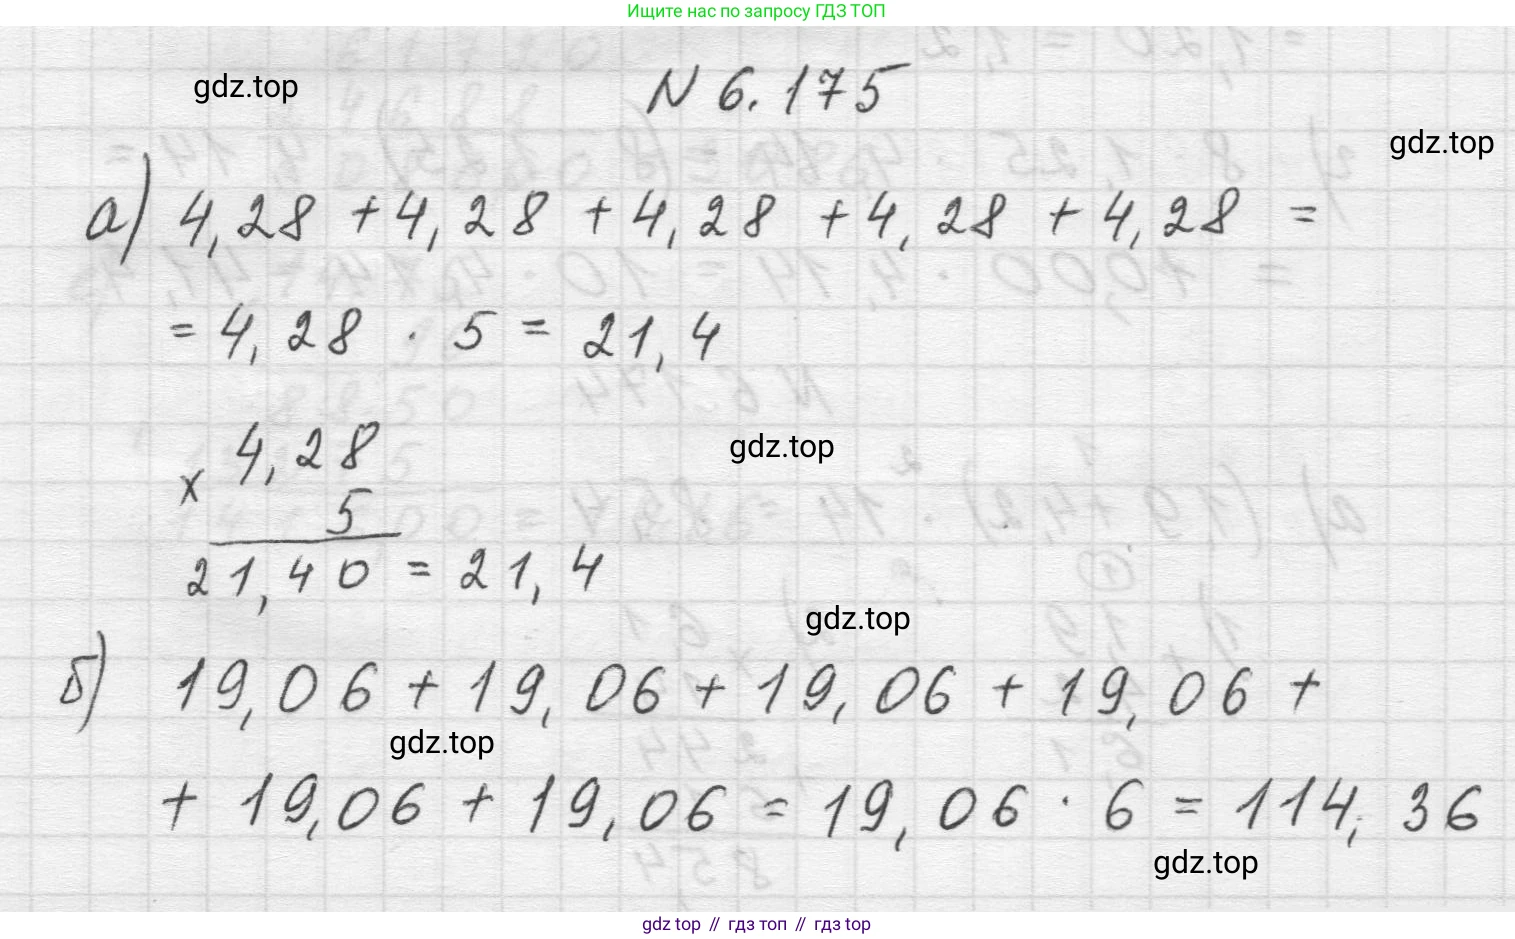 Ищите нас по запросу ГДЗ ТОП
gdz.top
N 6.175
gdz.top
а) 4,28 + 4,28 + 4,28 + 4,28 + 4,28 =
= 4,28 · 5 = 21,4
4,28
gdz.top
x
5
21,40 = 21,4
gdz.top
б) 19,06 + 19,06 + 19,06 + 19,06 +
gdz.top
+ 19,06 + 19,06 = 19,06 · 6 = 114,36
gdz.top
gdz top // гдз топ // gdz top